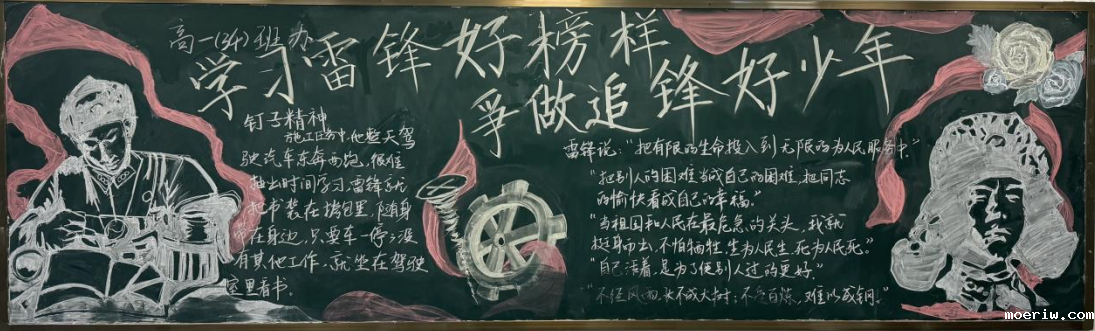 高一(34)班办
学习雷锋好榜样
争做追锋好少年
钉子精神
施工任务中,他整天驾
驶汽车东奔西跑,很难
抽出时间学习,雷锋就
把书装在挎包里,随身
带在身边,只要车一停,没
有其他工作,就坐在驾驶
室里看书。
雷锋说:"把有限的生命投入到无限的为人民服务中."
"把别人的困难当成自己的困难,把同志
的愉快看成自己的幸福."
"当祖国和人民在最危急的关头,我就
挺身而出,不怕牺牲,生为人民生,死为人民死."
"自己活着,是为了使别人过的更好."
"不经风雨,长不成大树;不受百炼,难以成钢."
moeriw.com